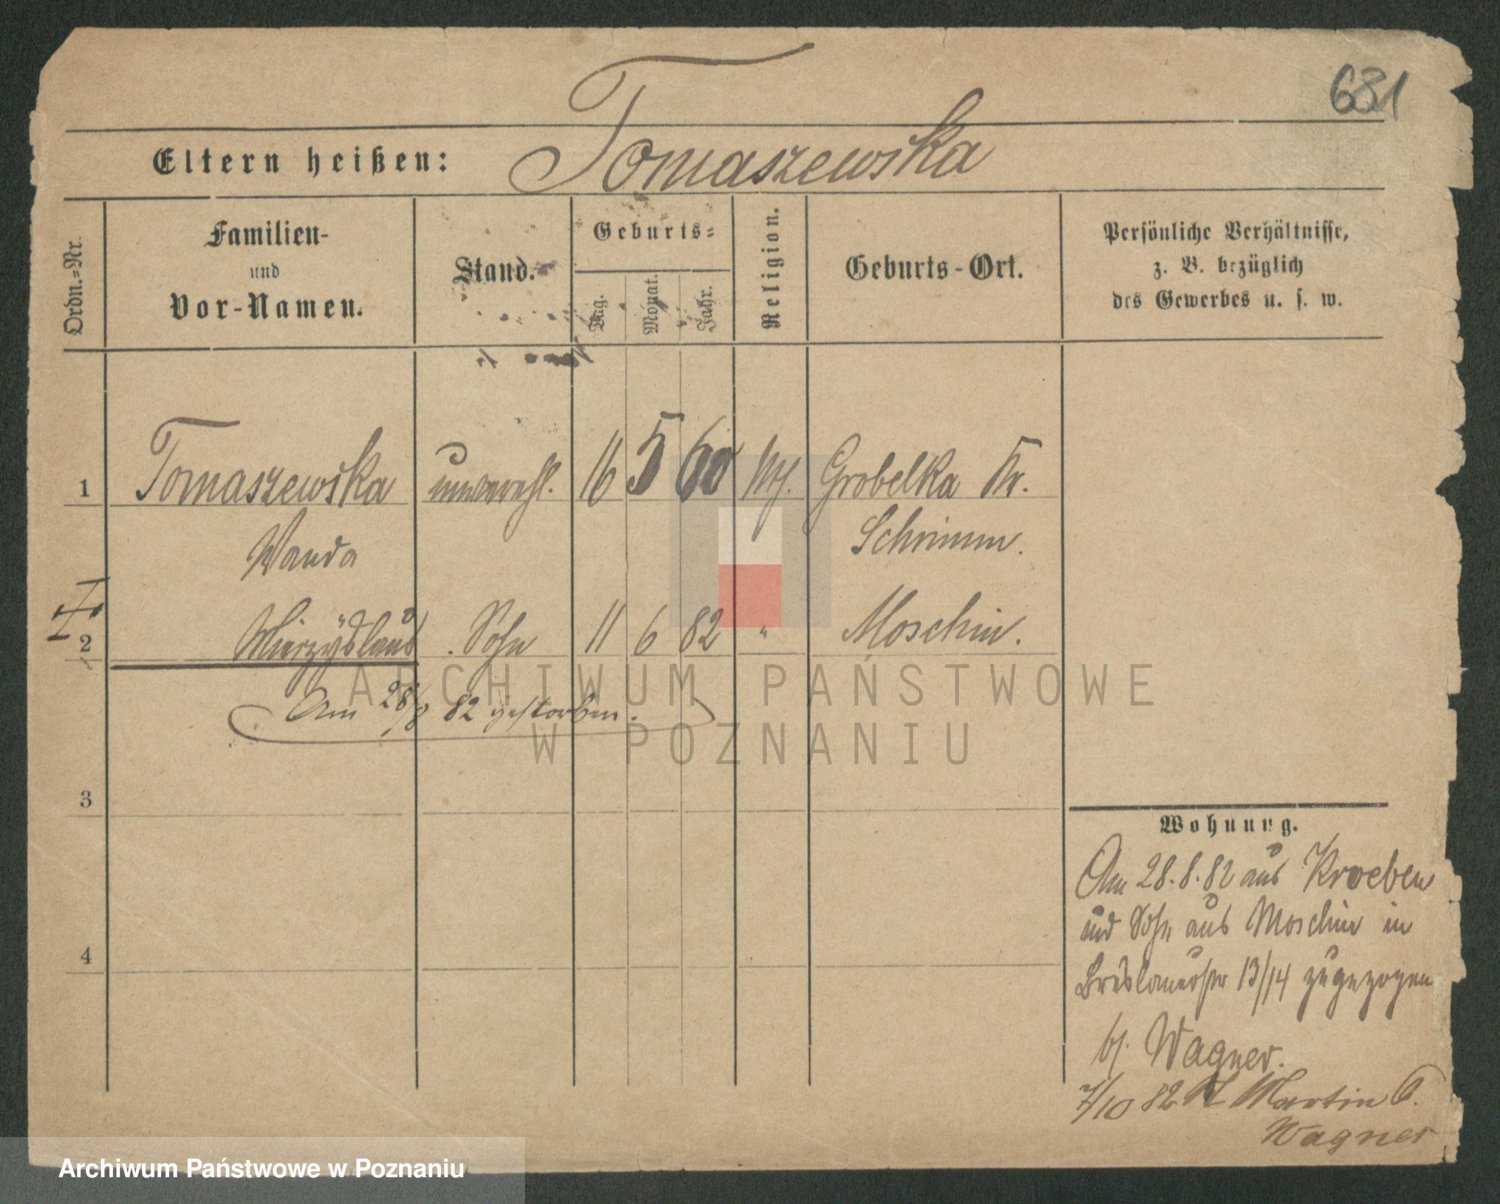 631
Eltern heißen: Tomaszewska
Ordn.-Nr.
Familien-
und
Vor-Namen.
Stand.
Geburts-
Tag.
Monat.
Jahr.
Religion.
Geburts-Ort.
Persönliche Verhältnisse,
z. B. bezüglich
des Gewerbes u. s. w.
1 Tomaszewska unverehl. 16 5 60 kth. Grobelka Kr.
Wanda Schrimm.
2 Mierzyslaus Sohn 11 6 82 " Moschin.
Am 28/8 82 gestorben.
3
4
Wohnung.
Am 28.8.82 aus Kroeben
und Sohn aus Moschin in
Breslauerstr 13/14 zugezogen
bj. Wagner.
7/10 82 St Martin 6.
Wagner
ARCHIWUM PAŃSTWOWE
W POZNANIU
Archiwum Państwowe w Poznaniu